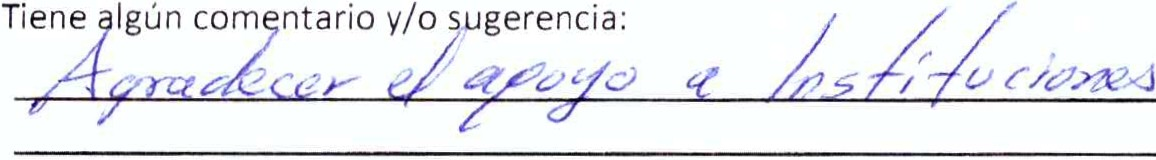 Tiene algún comentario y/o sugerencia:
Agradecer el apoyo a Instituciones